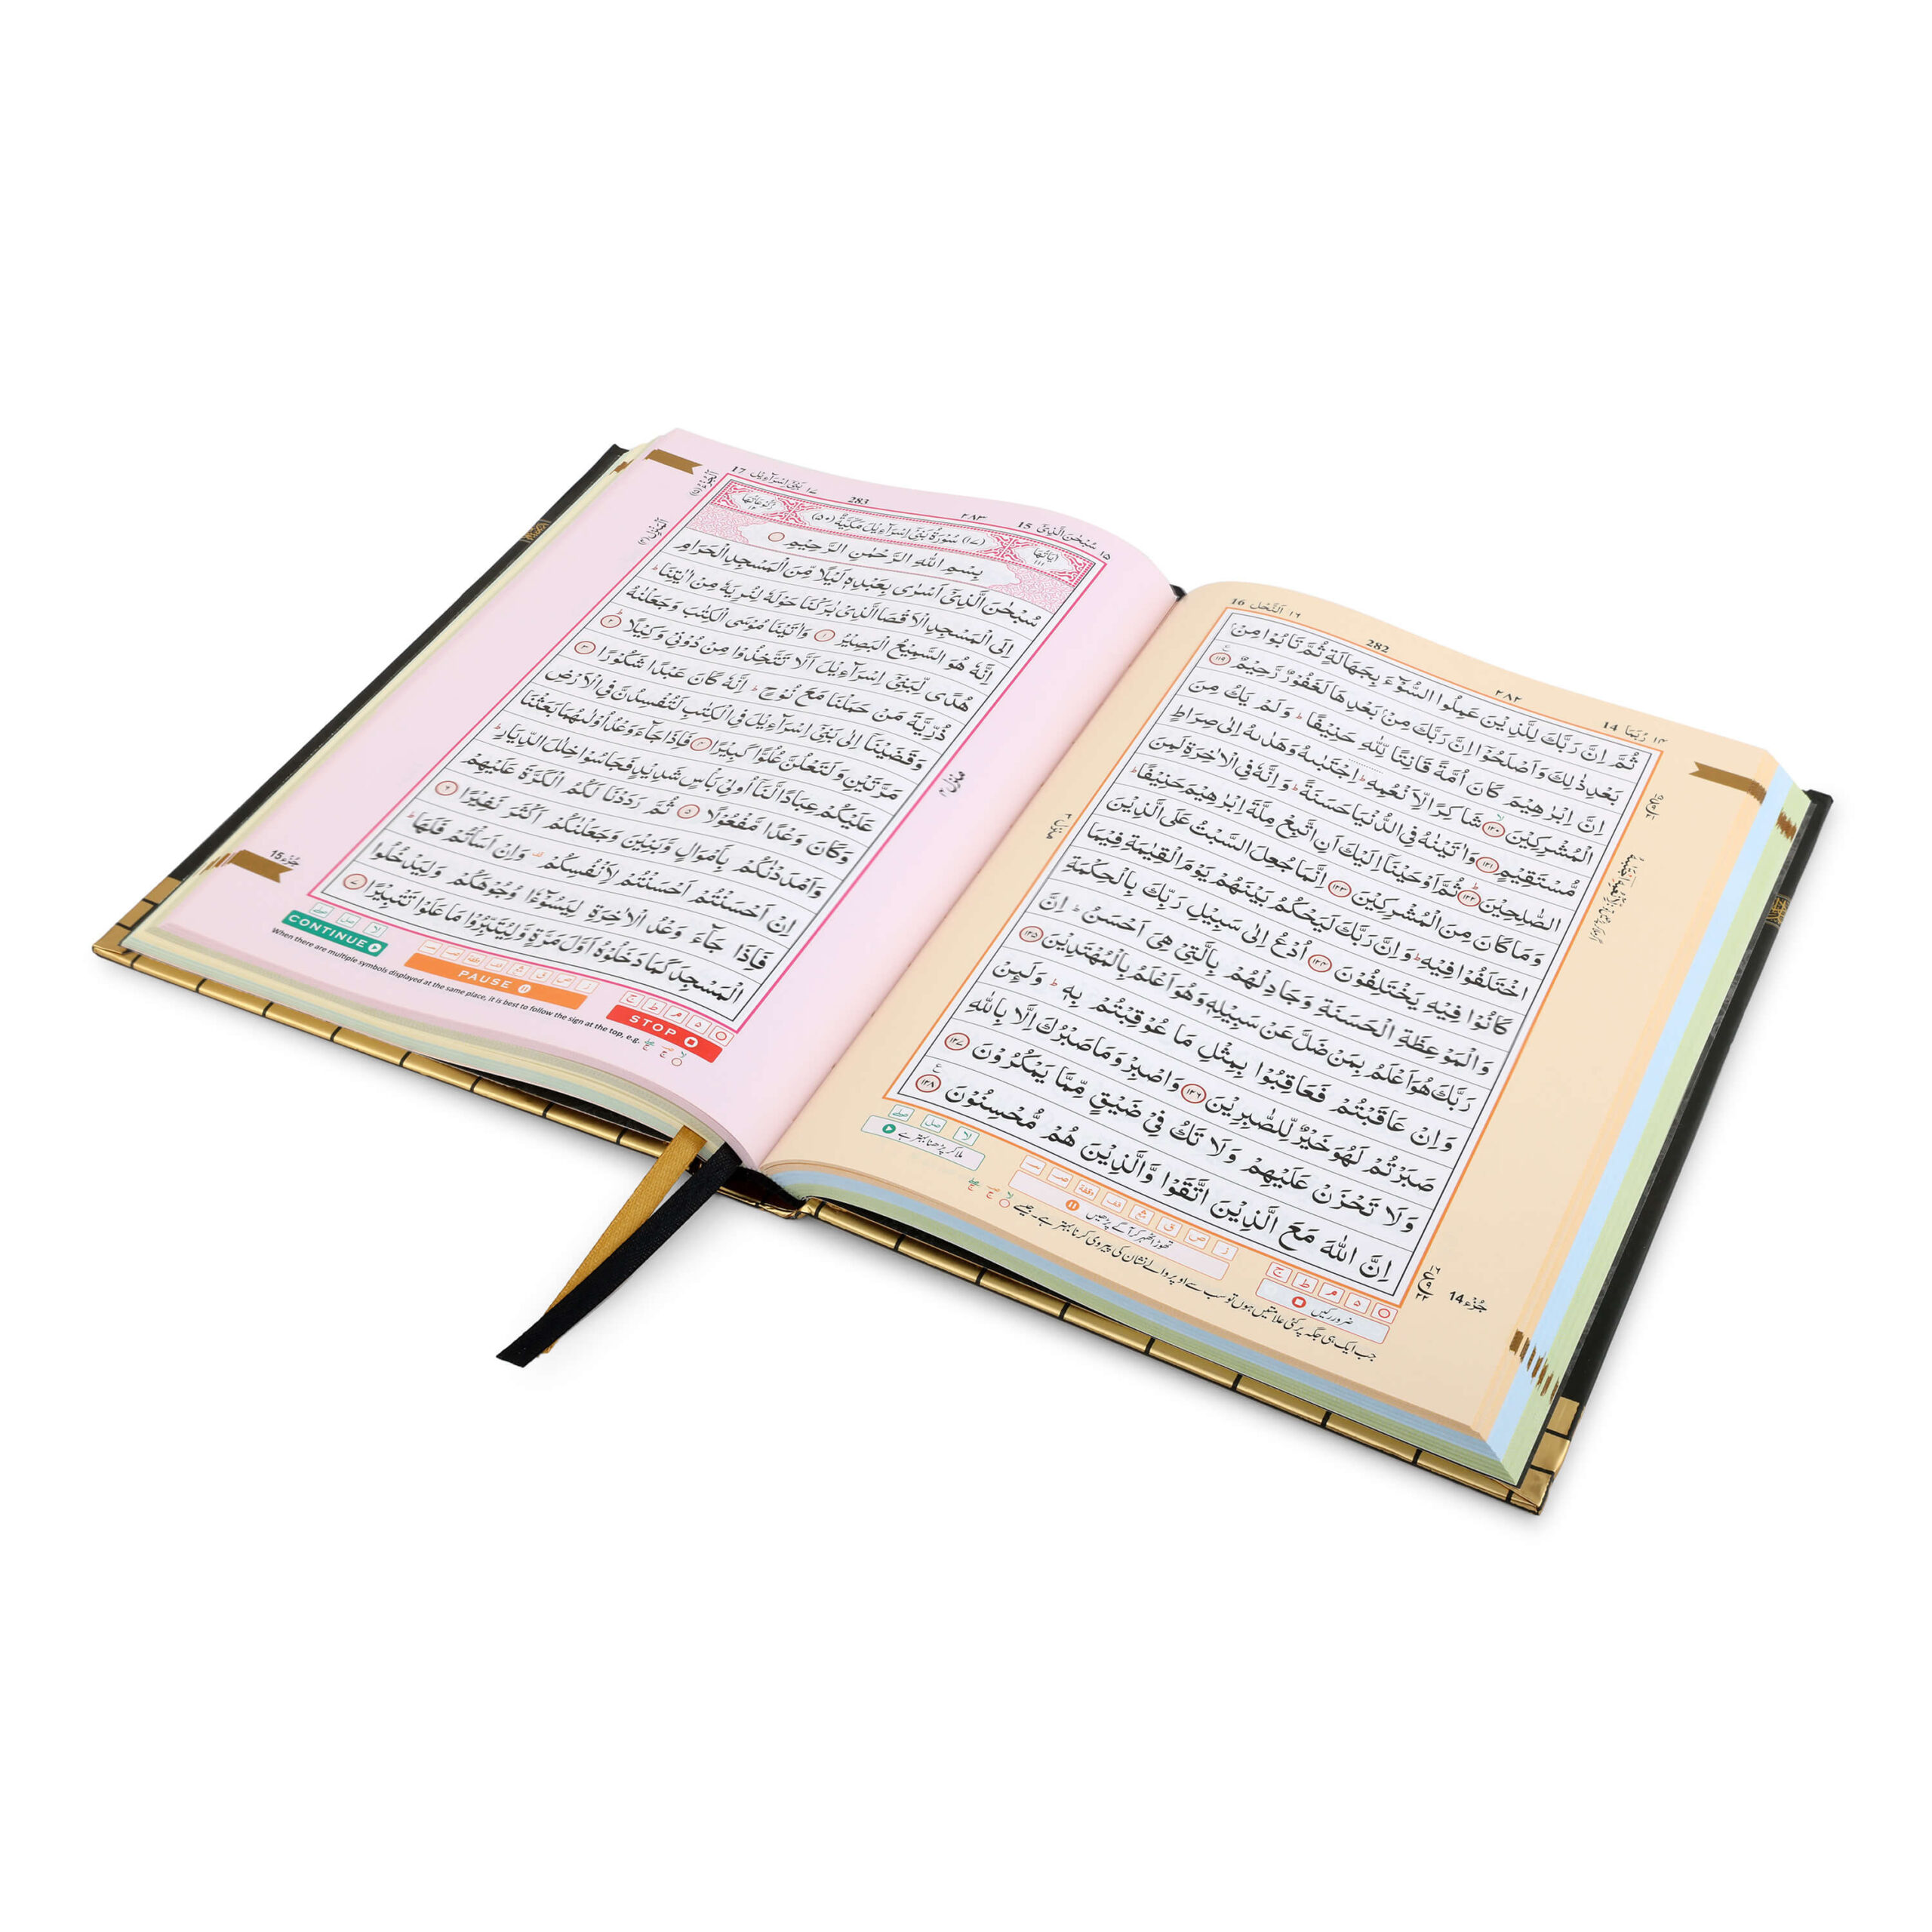 ١٤ رُبَمَا 14
٢٨٢
282
١٦ اَلنَّحْل 16
ثُمَّ اِنَّ رَبَّكَ لِلَّذِيْنَ عَمِلُوا السُّوْٓءَ بِجَهَالَةٍ ثُمَّ تَابُوْا مِنْۢ
بَعْدِ ذٰلِكَ وَاَصْلَحُوْۤا اِنَّ رَبَّكَ مِنْۢ بَعْدِهَا لَغَفُوْرٌ رَّحِيْمٌ ١١٩
اِنَّ اِبْرٰهِيْمَ كَانَ اُمَّةً قَانِتًا لِّلّٰهِ حَنِيْفًا ؕ وَلَمْ يَكُ مِنَ
الْمُشْرِكِيْنَ ١٢٠ شَاكِرًا لِّاَنْعُمِهٖ ؕ اِجْتَبٰىهُ وَهَدٰىهُ اِلٰى صِرَاطٍ
مُّسْتَقِيْمٍ ١٢١ وَاٰتَيْنٰهُ فِى الدُّنْيَا حَسَنَةً ؕ وَاِنَّهٗ فِى الْاٰخِرَةِ لَمِنَ
الصّٰلِحِيْنَ ١٢٢ ثُمَّ اَوْحَيْنَاۤ اِلَيْكَ اَنِ اتَّبِعْ مِلَّةَ اِبْرٰهِيْمَ حَنِيْفًا ؕ
وَمَا كَانَ مِنَ الْمُشْرِكِيْنَ ١٢٣ اِنَّمَا جُعِلَ السَّبْتُ عَلَى الَّذِيْنَ
اخْتَلَفُوْا فِيْهِ ؕ وَاِنَّ رَبَّكَ لَيَحْكُمُ بَيْنَهُمْ يَوْمَ الْقِيٰمَةِ فِيْمَا
كَانُوْا فِيْهِ يَخْتَلِفُوْنَ ١٢٤ اُدْعُ اِلٰى سَبِيْلِ رَبِّكَ بِالْحِكْمَةِ
وَالْمَوْعِظَةِ الْحَسَنَةِ وَجَادِلْهُمْ بِالَّتِىْ هِىَ اَحْسَنُ ؕ اِنَّ
رَبَّكَ هُوَ اَعْلَمُ بِمَنْ ضَلَّ عَنْ سَبِيْلِهٖ وَهُوَ اَعْلَمُ بِالْمُهْتَدِيْنَ ١٢٥
وَاِنْ عَاقَبْتُمْ فَعَاقِبُوْا بِمِثْلِ مَا عُوْقِبْتُمْ بِهٖ ؕ وَلَئِنْ
صَبَرْتُمْ لَهُوَ خَيْرٌ لِّلصّٰبِرِيْنَ ١٢٦ وَاصْبِرْ وَمَا صَبْرُكَ اِلَّا بِاللّٰهِ
وَلَا تَحْزَنْ عَلَيْهِمْ وَلَا تَكُ فِىْ ضَيْقٍ مِّمَّا يَمْكُرُوْنَ ١٢٧
اِنَّ اللّٰهَ مَعَ الَّذِيْنَ اتَّقَوْا وَّالَّذِيْنَ هُمْ مُّحْسِنُوْنَ ١٢٨
جُزْء 14
ضرور رکیں
تھوڑا ٹھہر کر آگے پڑھیں
ملا کر پڑھنا بہتر ہے
جب ایک ہی جگہ پر کئی علامتیں ہوں تو سب سے اوپر والے نشان کی پیروی کرنا بہتر ہے۔ جیسے
١٥ سُبْحٰنَ الَّذِىْۤ 15
٢٨٣
283
١٧ بَنِىْۤ اِسْرَآءِيْل 17
اٰيَاتُهَا ١١١
(١٧) سُوْرَةُ بَنِىْۤ اِسْرَآءِيْلَ مَكِّيَّةٌ (٥٠)
رُكُوْعَاتُهَا ١٢
بِسْمِ اللّٰهِ الرَّحْمٰنِ الرَّحِيْمِ
سُبْحٰنَ الَّذِىْۤ اَسْرٰى بِعَبْدِهٖ لَيْلًا مِّنَ الْمَسْجِدِ الْحَرَامِ
اِلَى الْمَسْجِدِ الْاَقْصَا الَّذِىْ بٰرَكْنَا حَوْلَهٗ لِنُرِيَهٗ مِنْ اٰيٰتِنَا ؕ
اِنَّهٗ هُوَ السَّمِيْعُ الْبَصِيْرُ ١ وَاٰتَيْنَا مُوْسَى الْكِتٰبَ وَجَعَلْنٰهُ
هُدًى لِّبَنِىْۤ اِسْرَآءِيْلَ اَلَّا تَتَّخِذُوْا مِنْ دُوْنِىْ وَكِيْلًا ٢
ذُرِّيَّةَ مَنْ حَمَلْنَا مَعَ نُوْحٍ ؕ اِنَّهٗ كَانَ عَبْدًا شَكُوْرًا ٣
وَقَضَيْنَاۤ اِلٰى بَنِىْۤ اِسْرَآءِيْلَ فِى الْكِتٰبِ لَتُفْسِدُنَّ فِى الْاَرْضِ
مَرَّتَيْنِ وَلَتَعْلُنَّ عُلُوًّا كَبِيْرًا ٤ فَاِذَا جَآءَ وَعْدُ اُوْلٰىهُمَا بَعَثْنَا
عَلَيْكُمْ عِبَادًا لَّنَاۤ اُولِىْ بَاْسٍ شَدِيْدٍ فَجَاسُوْا خِلٰلَ الدِّيَارِ ؕ
وَكَانَ وَعْدًا مَّفْعُوْلًا ٥ ثُمَّ رَدَدْنَا لَكُمُ الْكَرَّةَ عَلَيْهِمْ
وَاَمْدَدْنٰكُمْ بِاَمْوَالٍ وَّبَنِيْنَ وَجَعَلْنٰكُمْ اَكْثَرَ نَفِيْرًا ٦
اِنْ اَحْسَنْتُمْ اَحْسَنْتُمْ لِاَنْفُسِكُمْ وَاِنْ اَسَاْتُمْ فَلَهَا ؕ
فَاِذَا جَآءَ وَعْدُ الْاٰخِرَةِ لِيَسُوْٓءٗا وُجُوْهَكُمْ وَلِيَدْخُلُوا
الْمَسْجِدَ كَمَا دَخَلُوْهُ اَوَّلَ مَرَّةٍ وَّلِيُتَبِّرُوْا مَا عَلَوْا تَتْبِيْرًا ٧
جُزْء 15
CONTINUE
PAUSE
STOP
When there are multiple symbols displayed at the same place, it is best to follow the sign at the top, e.g.